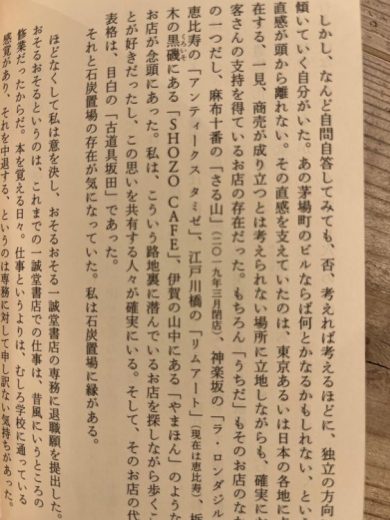 しかし、なんど自問自答してみても、否、考えれば考えるほどに、独立の方向
傾いていく自分がいた。あの茅場町のビルならば何とかなるかもしれない、とい
直感が頭から離れない。その直感を支えていたのは、東京あるいは日本の各地に
在する、一見、商売が成り立つとは考えられない場所に立地しながらも、確実に
客さんの支持を得ているお店の存在だった。もちろん「うちだ」もそのお店のなか
の一つだし、麻布十番の「さる山」(二〇一九年三月閉店)、神楽坂の「ラ・ロンダジル
恵比寿の「アンティークス タミゼ」、江戸川橋の「リムアート」(現在は恵比寿)、栃
木の黒磯にある「SHOZO CAFE」、伊賀の山中にある「やまほん」のような
お店が念頭にあった。私は、こういう路地裏に潜んでいるお店を探しながら歩くこ
とが好きだったし、この思いを共有する人々が確実にいる。そして、そのお店の代
表格は、目白の「古道具坂田」であった。
それと石炭置場の存在が気になっていた。私は石炭置場に縁がある。
ほどなくして私は意を決し、おそるおそる一誠堂書店の専務に退職願を提出した。
おそるおそるというのは、これまでの一誠堂書店での仕事は、昔風にいうところの
修業だったからだ。本を覚える日々。仕事というよりは、むしろ学校に通っている
感覚があり、それを中退する、というのは専務に対して申し訳ない気持ちがあった。